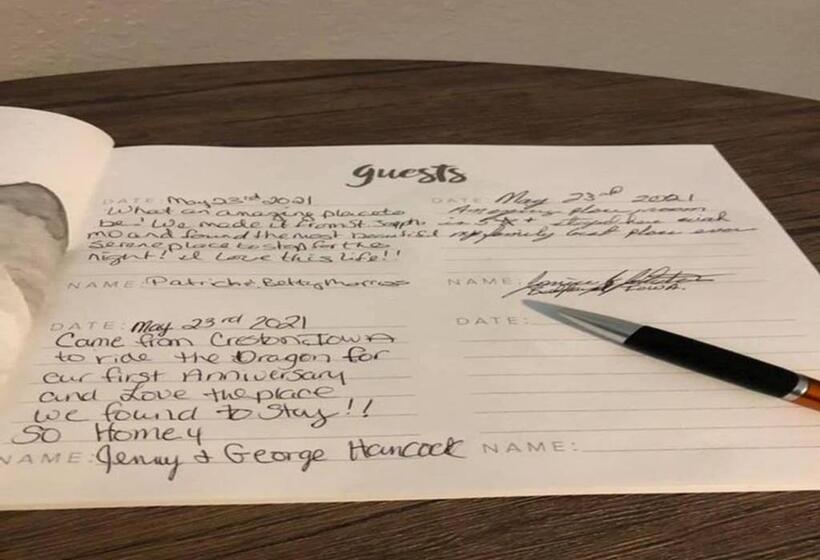 guests
DATE: May 23rd 2021
What an amazing place to
be! We made it from St Joseph
MO and found the most beautiful
serene place to stop for the
night! I Love this life!!
NAME: Patrick & Betty Morris
DATE: May 23rd 2021
Came from Creston, Iowa
to ride the Dragon for
our first Anniversary
and Love the place
we found to stay!!
So Homey
NAME: Jenny & George Hancock
DATE: May 23rd 2021
Amazing
my family best place ever
NAME:
IOWA.
DATE:
NAME: